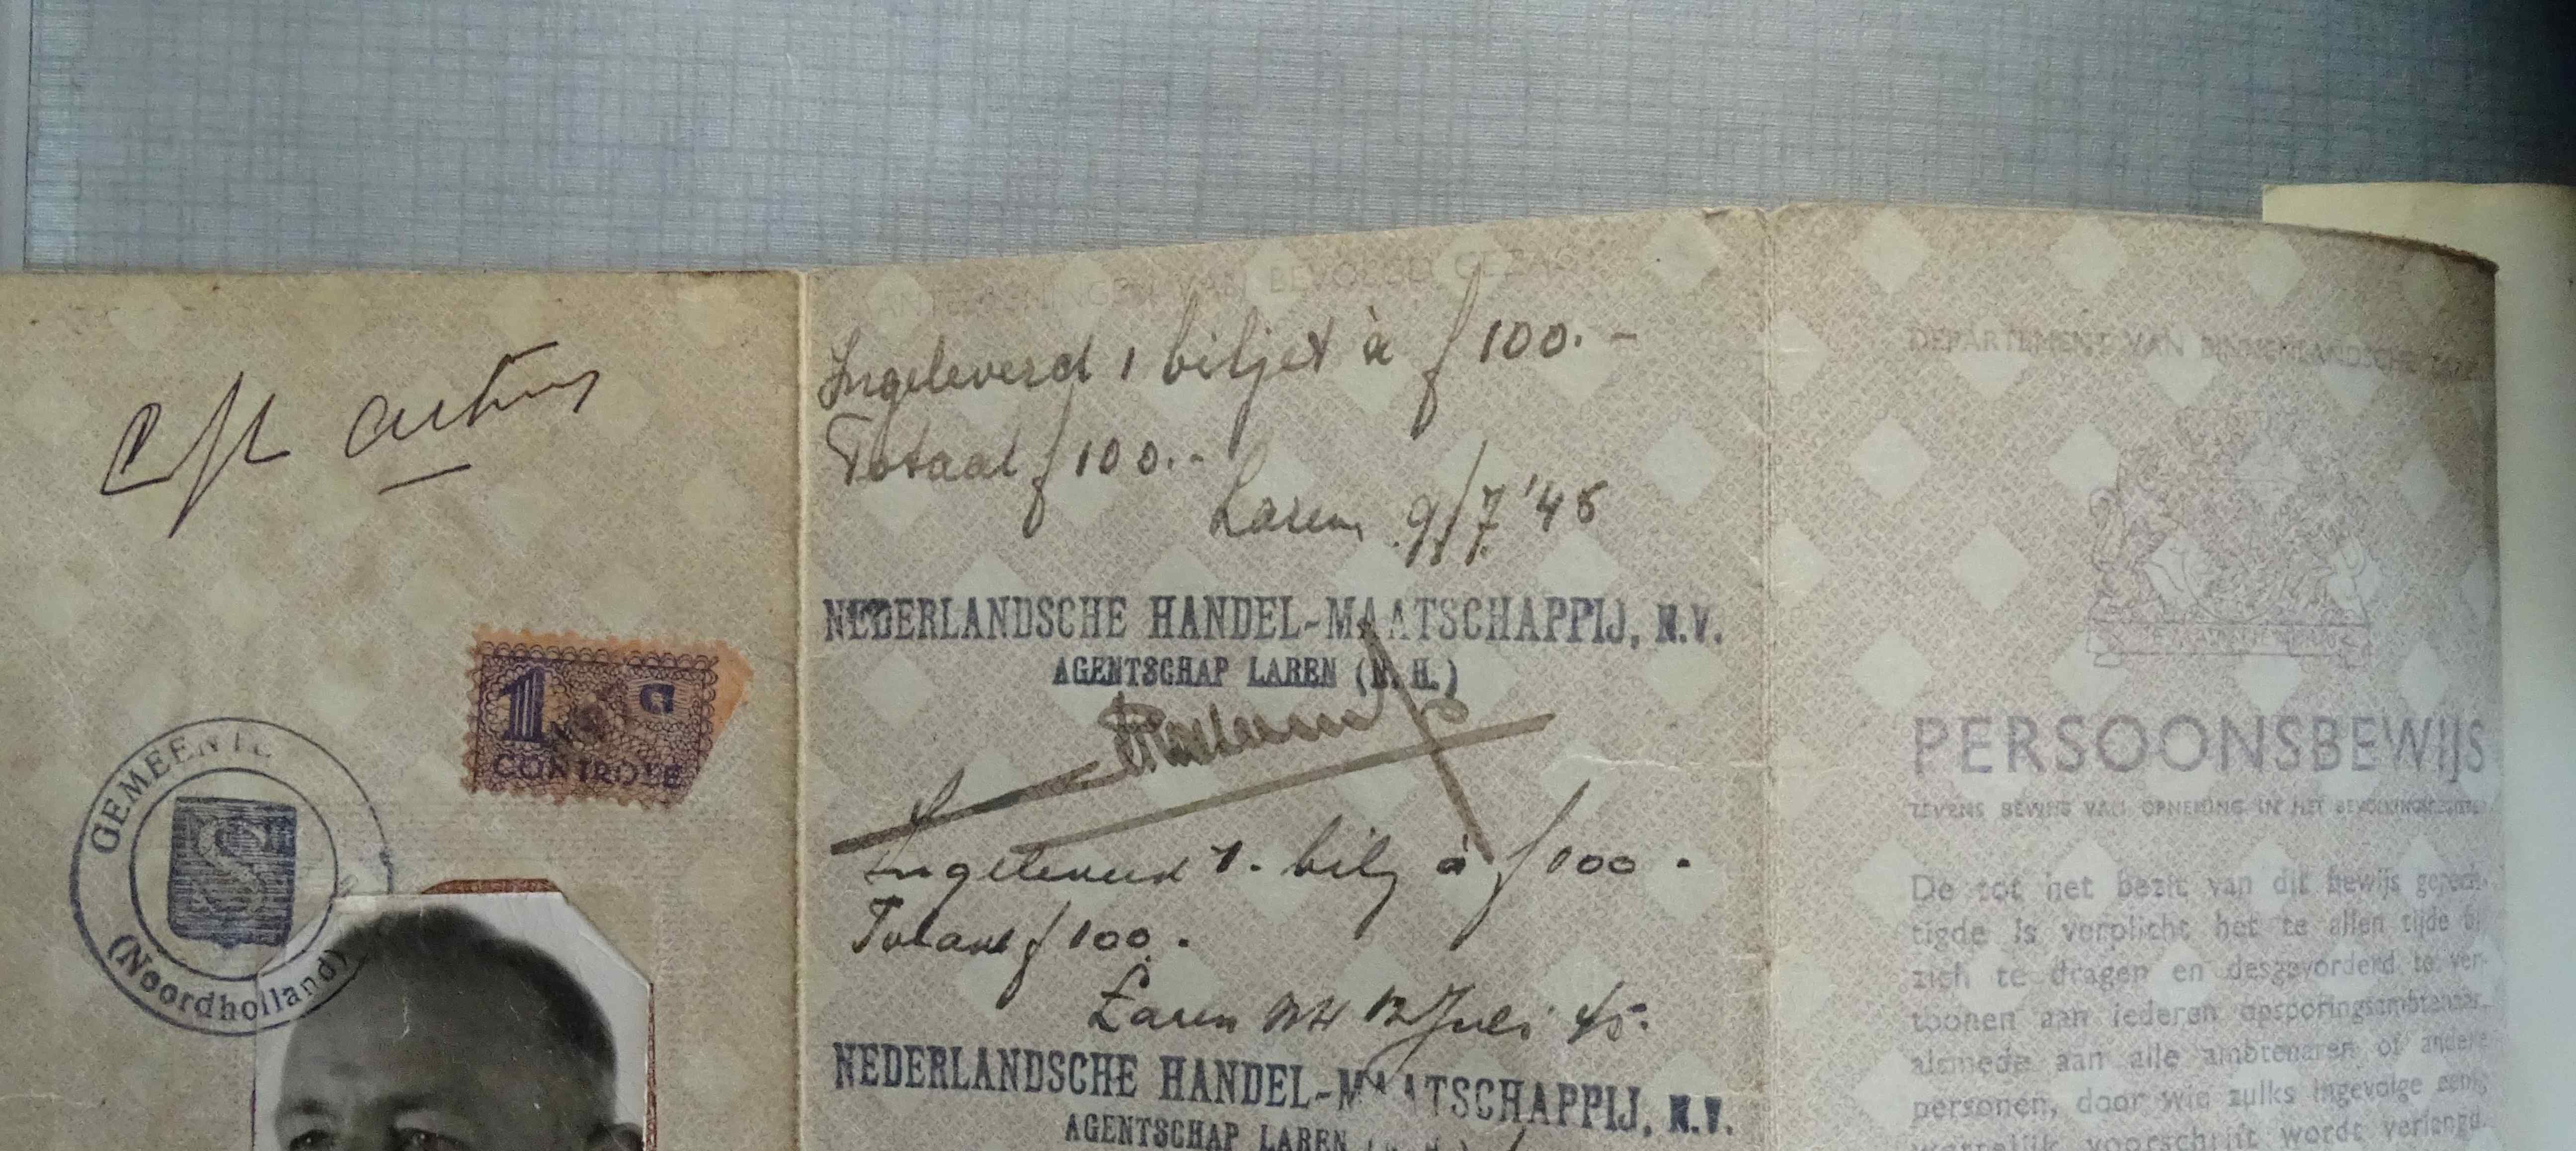 1
CONTROLE
GEMEENTE
(Noordholland)
AANTEEKENINGEN VAN BEVOEGD GEZAG
Ingeleverd 1 biljet à ƒ 100.-
Totaal ƒ 100.-
Laren 9/7 '45
NEDERLANDSCHE HANDEL-MAATSCHAPPIJ, N.V.
AGENTSCHAP LAREN (N. H.)
Ingeleverd 1. bilj à ƒ 100.
Totaal ƒ 100.
Laren NH 12 Juli 45.
NEDERLANDSCHE HANDEL-MAATSCHAPPIJ, N.V.
AGENTSCHAP LAREN (N. H.)
DEPARTEMENT VAN BINNENLANDSCHE
PERSOONSBEWIJS
TEVENS BEWIJS VAN OPNEMING IN HET BEVOLKINGSREGISTER
De tot het bezit van dit bewijs gerech-
tigde is verplicht het te allen tijde bij
zich te dragen en desgevorderd te ver-
toonen aan iederen opsporingsambtenaar,
alsmede aan alle ambtenaren of andere
personen, door wie zulks ingevolge eenig
wettelijk voorschrift wordt verlangd.